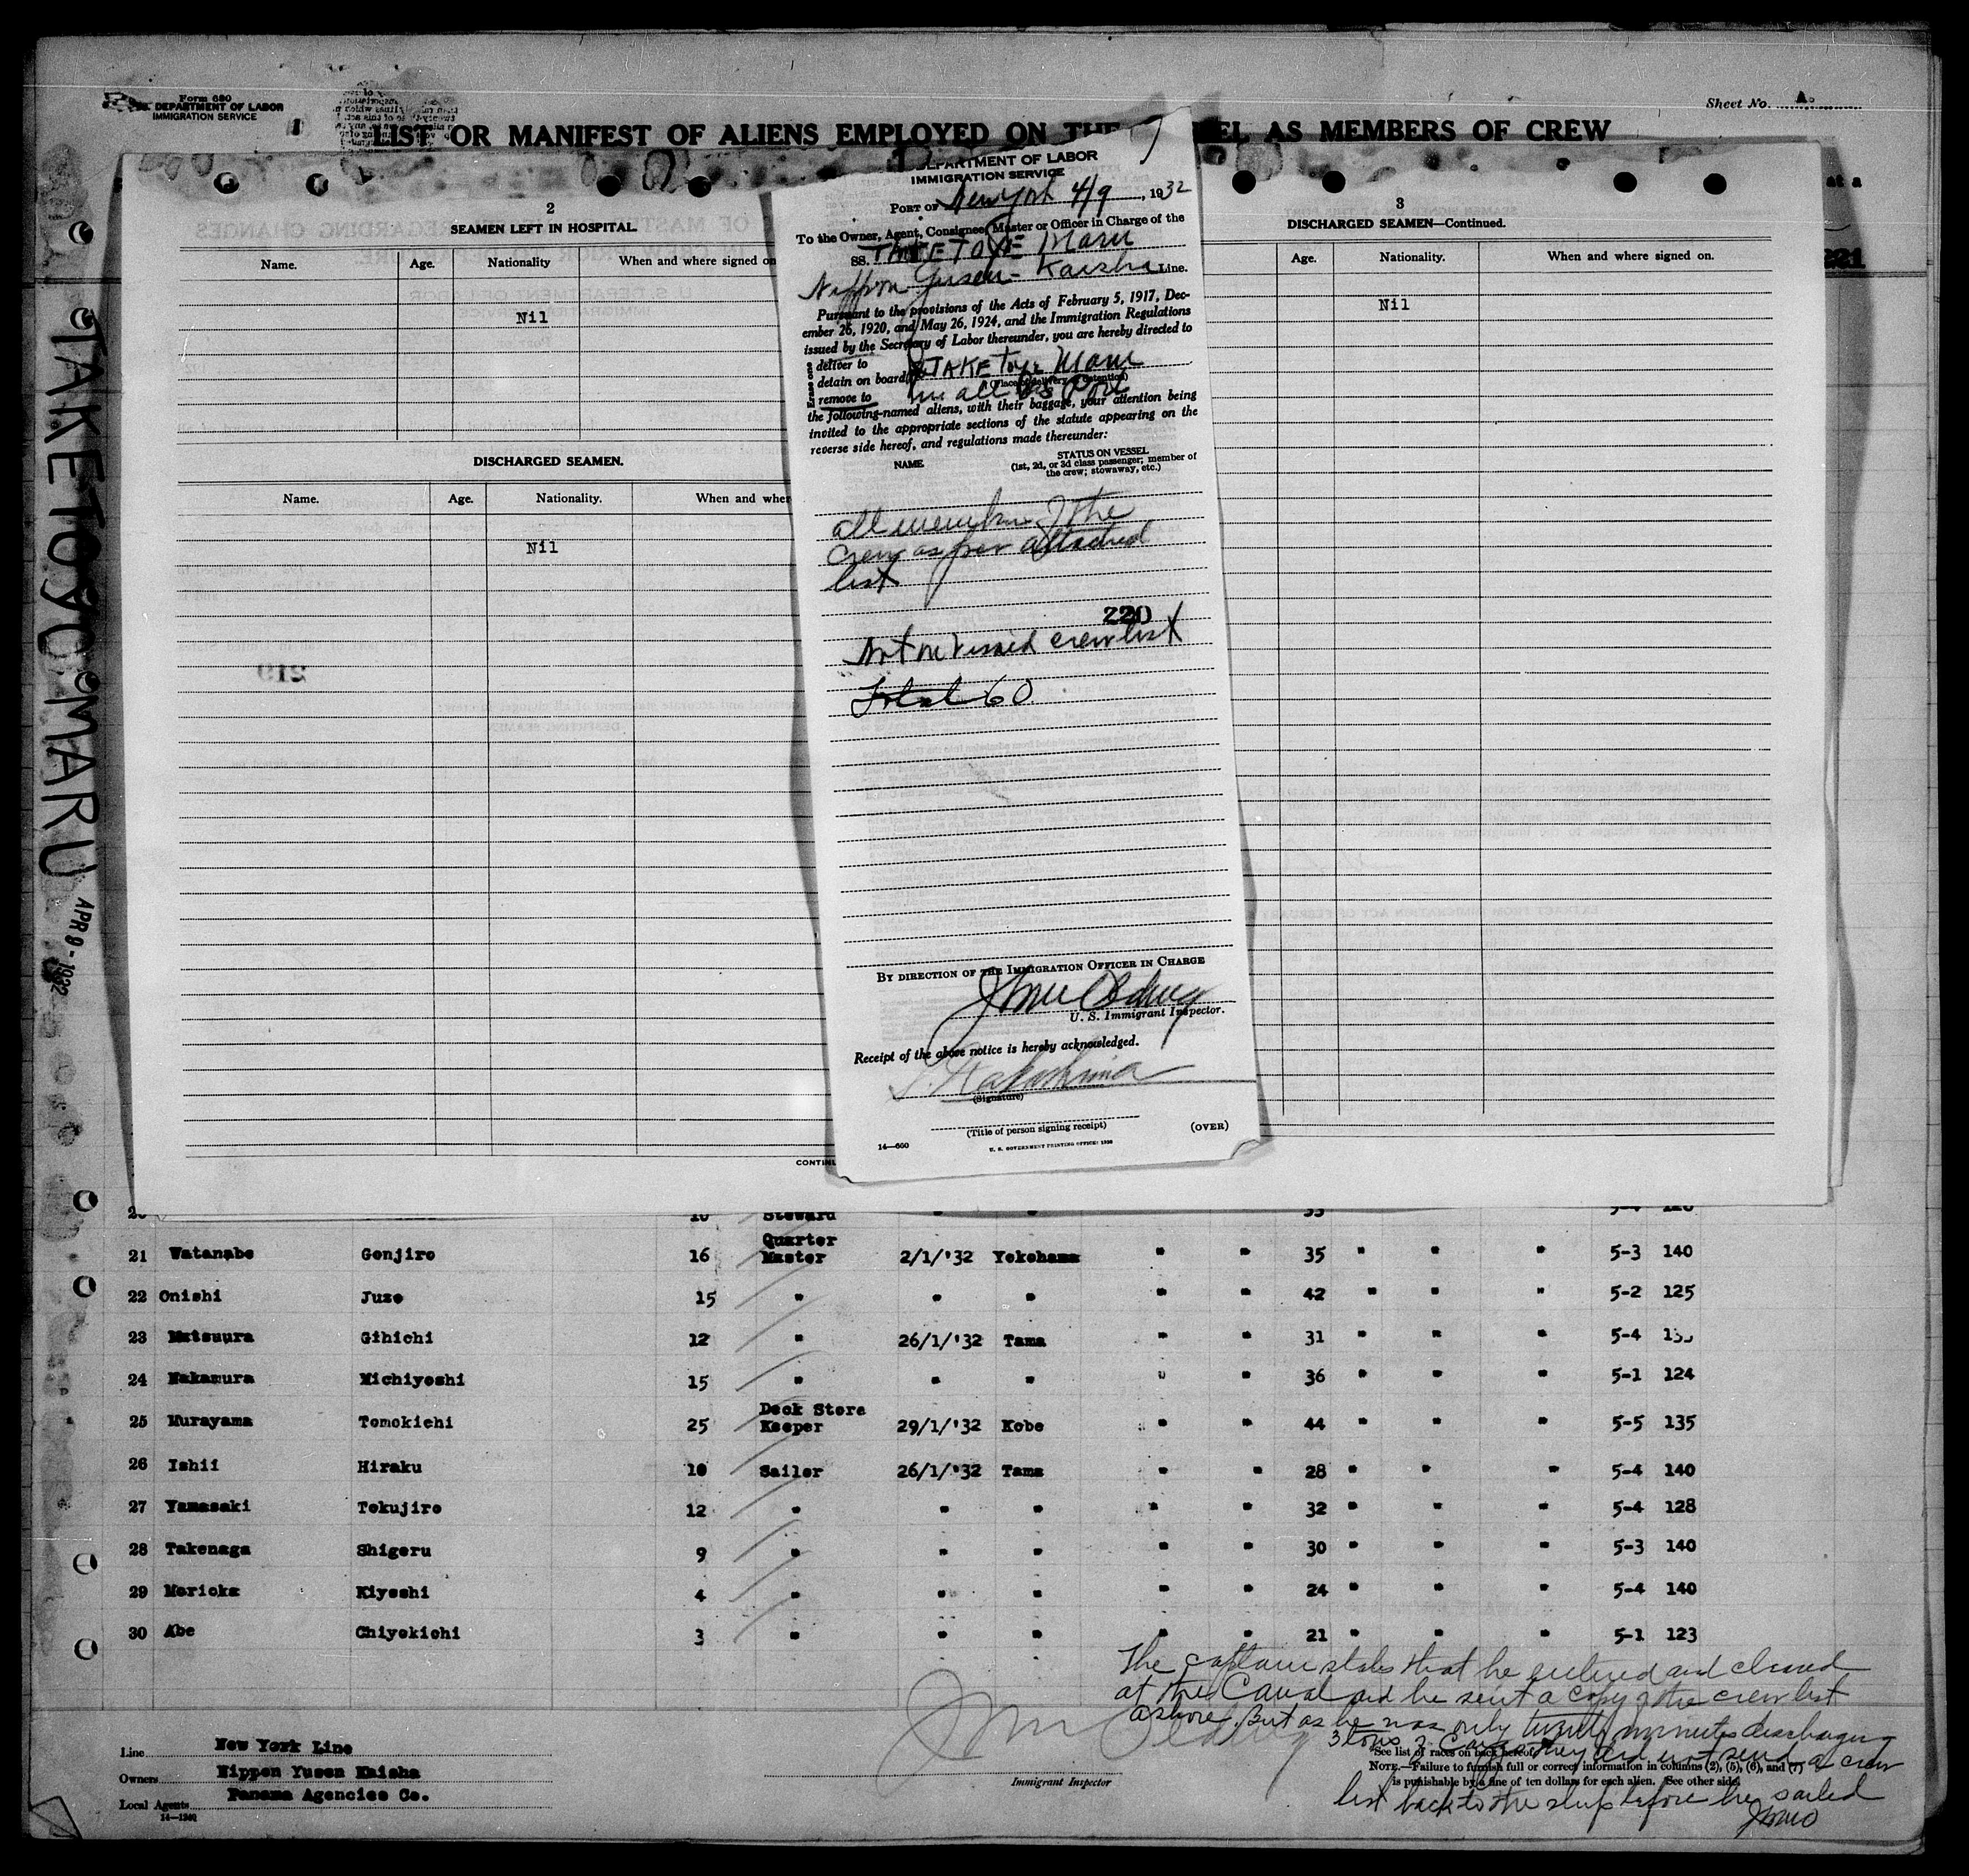 Form 680
U.S. DEPARTMENT OF LABOR
IMMIGRATION SERVICE
Sheet No. A.
LIST OR MANIFEST OF ALIENS EMPLOYED ON THE EL AS MEMBERS OF CREW
at a
221
TAKETOYO MARU
APR 9 - 1932
2
SEAMEN LEFT IN HOSPITAL.
Name. Age. Nationality When and where signed on
Nil
DISCHARGED SEAMEN.
Name. Age. Nationality. When and wher
Nil
219
CONTINU
DEPARTMENT OF LABOR
IMMIGRATION SERVICE
PORT OF New York 4/9, 1932
To the Owner, Agent, Consignee, Master or Officer in Charge of the
SS. TAKETOYE Maru
Nippon Yusen-Kaisha Line.
Pursuant to the provisions of the Acts of February 5, 1917, Dec-
ember 26, 1920, and May 26, 1924, and the Immigration Regulations
issued by the Secretary of Labor thereunder, you are hereby directed to
Erase one
deliver to
detain on board TAKEToye Maru
(Place of delivery or detention)
remove to in all US Port
the following-named aliens, with their baggage, your attention being
invited to the appropriate sections of the statute appearing on the
reverse side hereof, and regulations made thereunder:
NAME STATUS ON VESSEL
(1st, 2d, or 3d class passenger; member of
the crew; stowaway, etc.)
all members of the
Crew as per attached
list
220
Not on visaed crew list
Total 60
BY DIRECTION OF THE IMMIGRATION OFFICER IN CHARGE
U. S. Immigrant Inspector.
Receipt of the above notice is hereby acknowledged.
(Signature)
(Title of person signing receipt) (OVER)
14—600 U. S. GOVERNMENT PRINTING OFFICE:
3
DISCHARGED SEAMEN—Continued.
Age. Nationality. When and where signed on.
Nil
20 10 Steward " " 35 5-4 120
21 Watanabe Genjiro 16 Quarter Master 2/1/'32 Yokohama " " 35 " " " 5-3 140
22 Onishi Juzo 15 " " " " " 42 " " " 5-2 125
23 Matsuura Gihichi 12 " 26/1/'32 Tama " " 31 " " " 5-4
24 Nakamura Michiyoshi 15 " " " " " 36 " " " 5-1 124
25 Murayama Tomokichi 25 Deck Store Keeper 29/1/'32 Kobe " " 44 " " " 5-5 135
26 Ishii Hiraku 10 Sailor 26/1/'32 Tama " " 28 " " " 5-4 140
27 Yamasaki Tokujiro 12 " " " " " 32 " " " 5-4 128
28 Takenaga Shigeru 9 " " " " " 30 " " " 5-3 140
29 Morioka Kiyoshi 4 " " " " " 24 " " " 5-4 140
30 Abe Chiyokichi 3 " " " " " 21 " " " 5-1 123
The captain states that he entered and cleared
at the Canal and he sent a copy of the crew list
ashore. But as he was only twenty minutes discharging
3 tons of Cargo they did not send a crew
list back to the ship before he sailed
JMO
Line New York Line
Owners Nippon Yusen Kaisha
Local Agents Panama Agencies Co.
14—1240
Immigrant Inspector
See list of races on back hereof.
NOTE.—Failure to furnish full or correct information in columns (2), (5), (6), and (7)
is punishable by a fine of ten dollars for each alien. See other side.